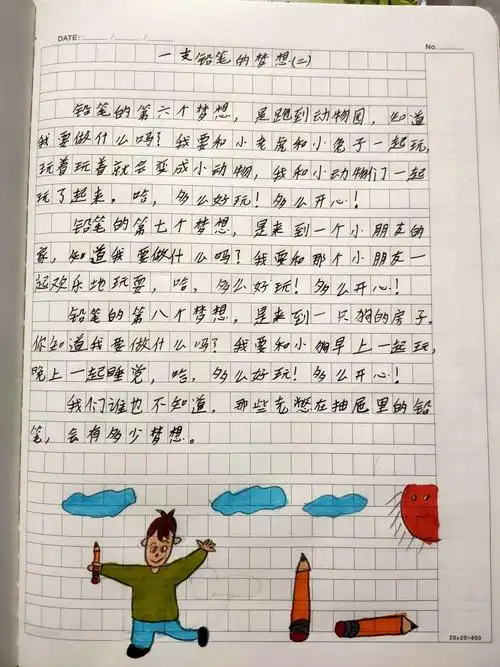 DATE: / /
No.
一支铅笔的梦想(二)
铅笔的第六个梦想，是跑到动物园，知道
我要做什么吗？我要和小老虎和小兔子一起玩，
玩着玩着就会变成小动物，我和小动物们一起
玩了起来。哈，多么好玩！多么开心！
铅笔的第七个梦想，是来到一个小朋友的
家，知道我要做什么吗？我要和那个小朋友一
起欢乐地玩耍，哈，多么好玩！多么开心！
铅笔的第八个梦想，是来到一只狗的房子，
你知道我要做什么吗？我要和小狗早上一起玩，
晚上一起睡觉，哈，多么好玩！多么开心！
我们谁也不知道，那些先憋在抽屉里的铅
笔，会有多少梦想。
20x20=400